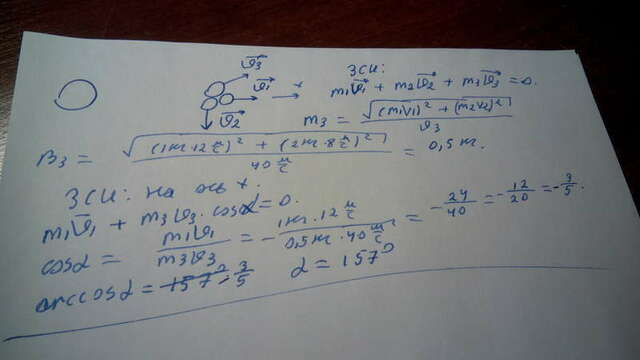 ЗСИ:
v⃗3
v⃗1 x
m1v⃗1 + m2v⃗2 + m3v⃗3 = 0.
v⃗2
m3 = √((m1v1)² + (m2v2)²) / v3
m3 = √((1кг·12 м/с)² + (2кг·8 м/с)²) / 40 м/с = 0,5 кг.
ЗСИ: на ось x.
m1v⃗1 + m3v3·cosα = 0.
cosα = m1v1 / m3v3 = - 1кг·12 м/с / 0,5кг·40 м/с = - 24/40 = - 12/20 = - 3/5.
arccosα = 157° - 3/5 α = 157°